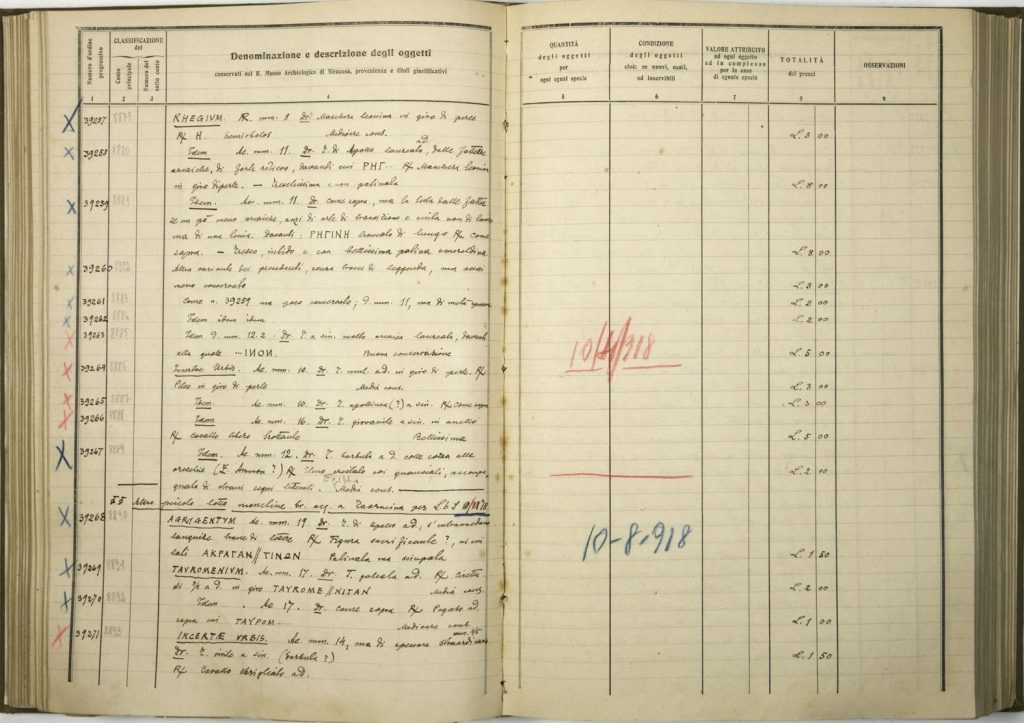 Numero d'ordine progressivo
CLASSIFICAZIONE del
Conto principale
Numero del sotto conto
Denominazione e descrizione degli oggetti
conservati nel R. Museo Archeologico di Siracusa, provenienza e titoli giustificativi
1 2 3 4
39257 RHEGIUM. AR. mm. 8 Dr. Maschera leonina in giro di perle
R/ H. Mediocre cons.
39258 Idem Ae. mm. 11. Dr. T. di Apollo laureato, ad. dalle fattezze
arcaiche, di forte rilievo, davanti cui ΡΗΓ-- R/ Maschera leonina
in giro di perle. — Freschissima e non patinata
39259 Idem. Ae. mm. 11. Dr. come sopra, ma la testa dalle fattez
ze un pò meno arcaiche, anzi di arte di transizione e cinta non di lau
ma di una tenia. Davanti: ΡΗΓΙΝΗ R/ come
sopra. — Fresco, nitido e con bellissima patina smeraldina.
39260 Altra variante dei precedenti, senza tracce di leggenda, ma assai
meno conservato
39261 Come n. 39259 ma poco conservato; d. mm. 11, ma di metà spessore
39262 Idem idem idem
39263 Idem d. mm. 12.2. Dr. T. a sin. molto arcaica laureata, davanti
alla quale --ΙΝΟΝ. Buona conservazione
39264 Incertae Urbis. Ae. mm. 10. Dr. T. mul. ad. in giro di perle. R/
Pileo in giro di perle Media cons.
39265 Idem. Ae. mm. 10. Dr. T. apollinea (?) a sin. R/ come sopra
39266 Idem Ae. mm. 16. Dr. T. giovanile a sin. in anello
R/ cavallo libero trottante Bellissima
39267 Idem. Ae. mm. 12. Dr. T. barbuta a d. colle corna alle
orecchie (Z. Ammon?) R/ Elmo crestato coi guanciali, accompa
gnato di strani segni litterali. Media cons.
Altro piccolo lotto monetine br. acq. a Taormina per L. 6
39268 AGRIGENTVM Ae. mm. 19 Dr. T. di Apollo ad.; s'intravvedono
tracce di lettere R/ Figura sacrificante?, ai cui
lati ΑΚΡΑΓΑΝ//ΤΙΝΩΝ Patinata ma sciupata
39269 TAVROMENIVM. Ae. mm. 17. Dr. T. galeata ad. R/
di 3/4 a d. in giro TAYROME//NITAN Media cons.
39270 Idem. Ae 17. Dr. come sopra R/ Pegaso ad.
sopra cui TAYPOM--- Mediocre cons.
39271 INCERTÆ VRBIS. Ae. mm. 14, ma di spessore straordinario mm. 4/5
Dr. T. virile a sin. (barbuta?)
R/ Cavallo sbrigliato ad.
QUANTITÀ degli oggetti per ogni egual specie
CONDIZIONE degli oggetti cioè: se nuovi, usati, od inservibili
VALORE ATTRIBUITO ad ogni oggetto ed in complesso per le cose di eguale specie
TOTALITÀ dei prezzi
OSSERVAZIONI
5 6 7 8 9
L. 3 00
L. 8 00
L. 8 00
L. 3 00
L. 2 00
L. 2 00
10/4/918
L. 5 00
L. 3 00
L. 3 00
L. 5 00
L. 2 00
10-8-918
L. 1 50
L. 2 00
L. 1 00
L. 1 50